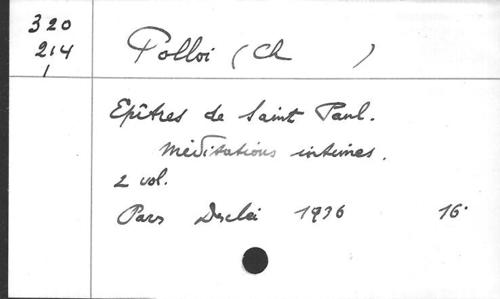 320
214
1
Polloi (Ch )
Epîtres de Saint Paul.
Méditations intimes.
2 vol.
Paris Desclée 1936 16°